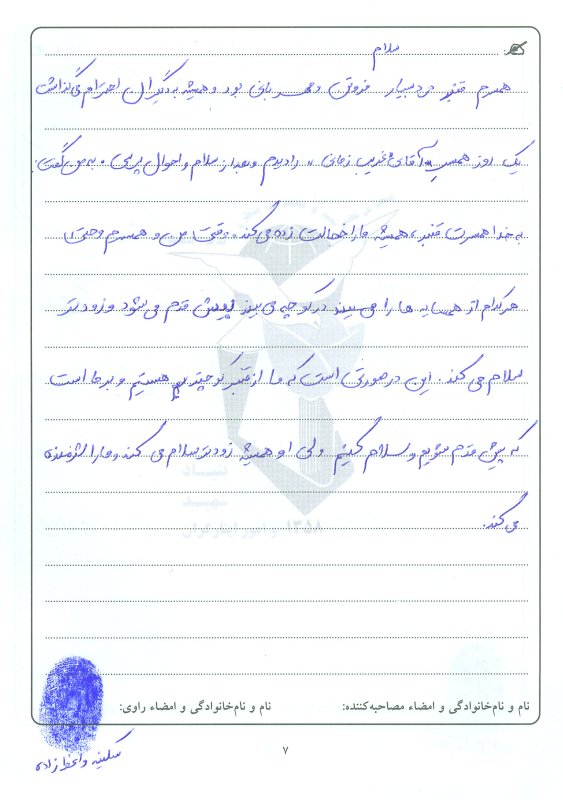 سلام
همسرم قنبر مرد بسیار فروتن و مهربانی بود و همیشه به دیگران احترام می‌گذاشت
یک روز همسر آقای غریب زمانی را دیدم و بعد از سلام و احوال پرسی، به من گفت:
به خدا همسرت قنبر، همیشه ما را خجالت زده می‌کند. وقتی من و همسرم و حتی
هر کدام از همسایه ها را می‌بیند در کوچه می‌بیند پیش قدم می‌شود و زودتر
سلام می‌کند. این در صورتی است که ما از قنبر کوچتریم هستیم و بر ما است
که پیش قدم شویم و سلام کنیم ولی او همیشه زودتر سلام می کند و ما را شرمنده
می‌کند.
بنیاد
شهید
و امور ایثارگران ۱۳۵۸
نام و نام‌خانوادگی و امضاء مصاحبه‌کننده: نام و نام‌خانوادگی و امضاء راوی:
سکینه واعظ زاده
۷